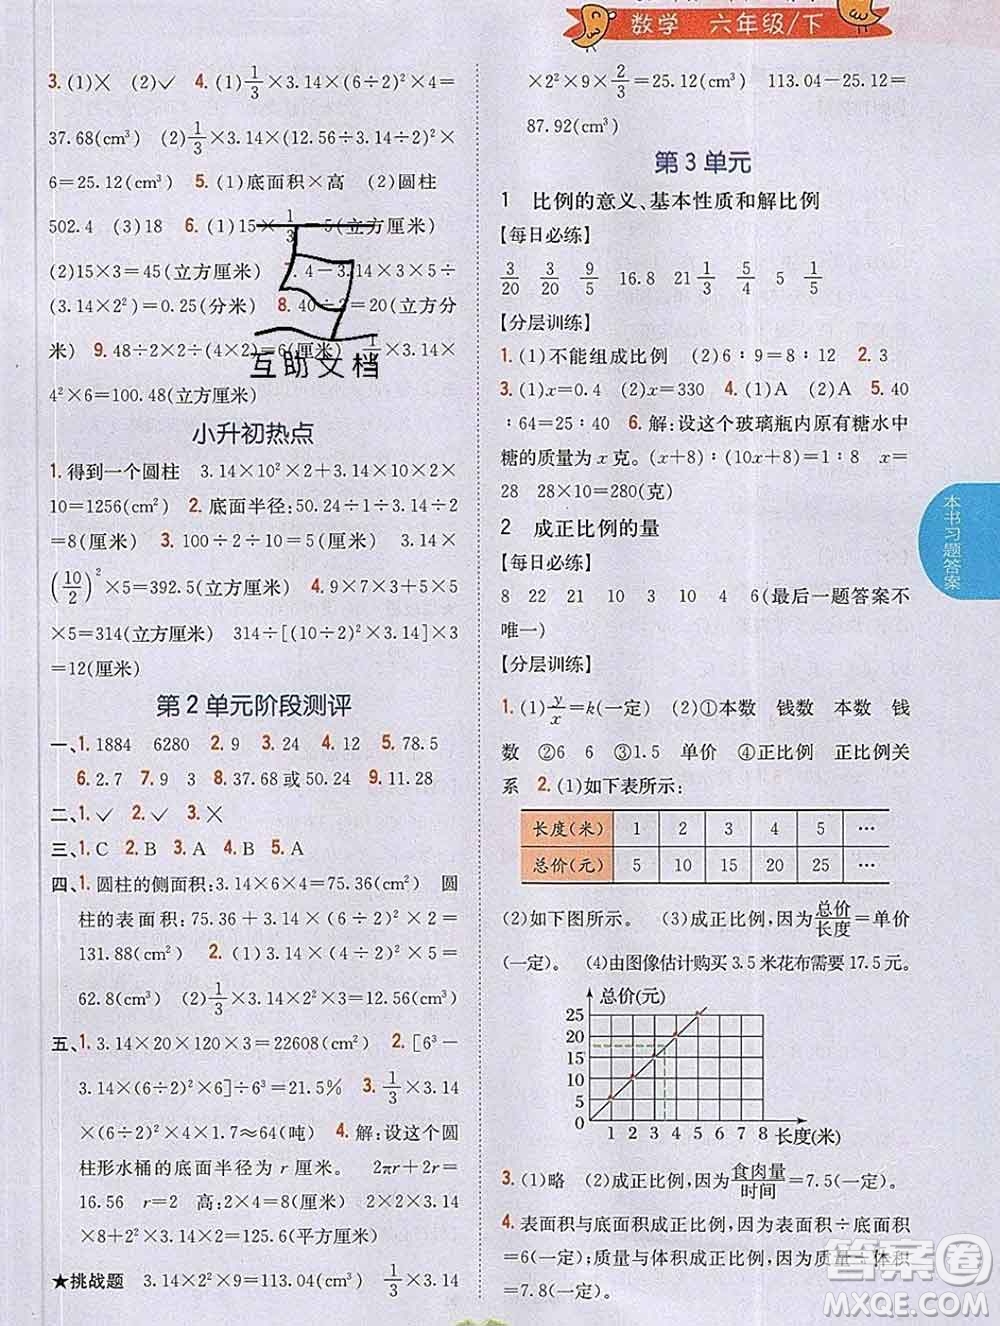 数学 六年级/下
3.(1)✕ (2)✓ 4.(1)1/3×3.14×(6÷2)²×4=
37.68(cm³) (2)1/3×3.14×(12.56÷3.14÷2)²×
6=25.12(cm³) 5.(1)底面积×高 (2)圆柱
502.4 (3)18 6.(1)15×1/3=5(立方厘米)
(2)15×3=45(立方厘米) .4-3.14×3×5÷
(3.14×2²)=0.25(分米) 8.40÷2=20(立方分
米) 9.48÷2×2÷(4×2)=6(厘米) 1/3×3.14×
4²×6=100.48(立方厘米)
小升初热点
1.得到一个圆柱 3.14×10²×2+3.14×10×2×
10=1256(cm²) 2.底面半径:50.24÷3.14÷2
=8(厘米) 3.100÷2÷10=5(厘米) 3.14×
(10/2)²×5=392.5(立方厘米) 4.9.42÷3×20×5
×5=314(立方厘米) 314÷[(10÷2)²×3.14]×3
=12(厘米)
第2单元阶段测评
一、1.1884 6280 2.9 3.24 4.12 5.78.5
6.2.7 7.9 3 8.37.68或50.24 9.11.28
二、1.✓ 2.✓ 3.✕
三、1.C 2.B 3.B 4.A 5.A
四、1.圆柱的侧面积:3.14×6×4=75.36(cm²) 圆
柱的表面积:75.36+3.14×(6÷2)²×2=
131.88(cm²) 2.(1)3.14×(4÷2)²×5=
62.8(cm³) (2)1/3×3.14×3²×10=94.2(cm³)
五、1.3.14×20×120×3=22608(cm²) 2.[6³-
3.14×(6÷2)²×6]÷6³=21.5% 3.1/3×3.14
×(6÷2)²×4×1.7≈64(吨) 4.解:设这个圆
柱形水桶的底面半径为r厘米。 2πr+2r=
16.56 r=2 高:2×4=8(厘米) 2×2×3.14
×8+2²×3.14×2=125.6(平方厘米)
★挑战题 3.14×2²×9=113.04(cm³) 1/3×3.14
×2²×9×2/3=25.12(cm³) 113.04-25.12=
87.92(cm³)
第3单元
1 比例的意义、基本性质和解比例
【每日必练】
3/20 3/20 8/5 16.8 21 1/3 5/4 3/5
【分层训练】
1.(1)不能组成比例 (2)6∶9=8∶12 2.3
3.(1)x=0.4 (2)x=330 4.(1)A (2)A 5.40
∶64=25∶40 6.解:设这个玻璃瓶内原有糖水中
糖的质量为x克。(x+8)∶(10x+8)=1∶8 x=
28 28×10=280(克)
2 成正比例的量
【每日必练】
8 22 21 10 3 10 4 6(最后一题答案不
唯一)
【分层训练】
1.(1)y/x=k(一定) (2)①本数 钱数 本数 钱
数 ②6 6 ③1.5 单价 ④正比例 正比例关
系 2.(1)如下表所示:
长度(米) 1 2 3 4 5 …
总价(元) 5 10 15 20 25 …
(2)如下图所示。 (3)成正比例,因为总价/长度=单价
(一定)。 (4)由图像估计购买3.5米花布需要17.5元。
总价(元)
25
20
15
10
5
0
1 2 3 4 5 6 7 8 长度(米)
3.(1)略 (2)成正比例,因为食肉量/时间=7.5(一定)
4.表面积与底面积成正比例,因为表面积÷底面积
=6(一定);质量与体积成正比例,因为质量÷体积
=7.8(一定)。
本书习题答案
互助文档
答案圈
MXQE.COM